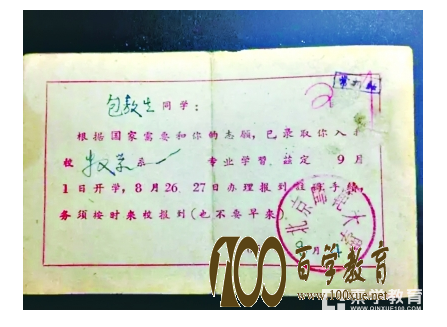 包敖生同学：
根据国家需要和你的志愿，已录取你入本
校 专业学習。兹定 9月
1日开学，8月26、27日办理报到註册手续，
务须按时来校报到（也不要早来）。
北京农大学
月
100百学教育
www.100xue.net
索学教育
WWW.QINXUE100.COM